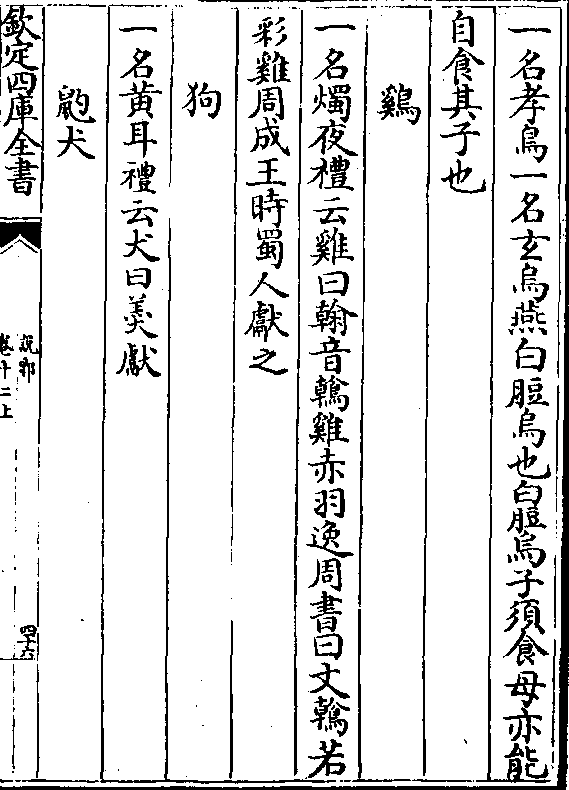 一名孝鳥一名玄烏燕白脰烏也白脰烏子須食母亦能
自食其子也
鷄
一名燭夜禮云雞曰翰音鶾雞赤羽逸周書曰文鶾若
彩雞周成王時蜀人獻之
狗
一名黄耳禮云犬曰羮獻
鼩犬
欽定四庫全書
說郛
卷十二上
四十六